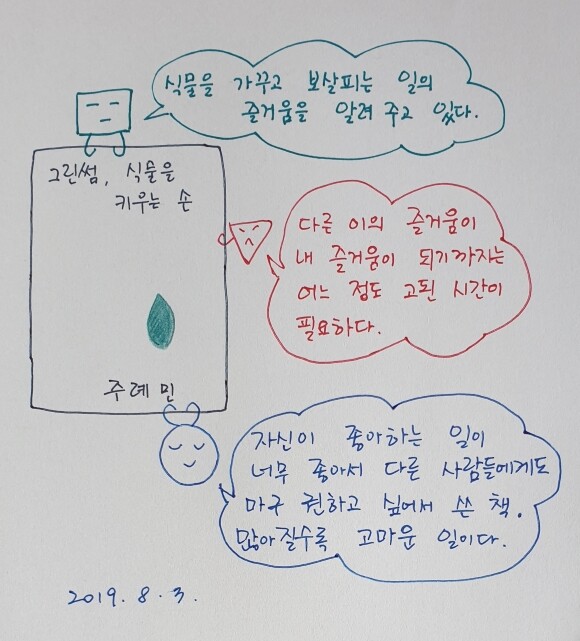 식물을 가꾸고 보살피는 일의
즐거움을 알려 주고 있다.
그린썸, 식물을
키우는 손
다른 이의 즐거움이
내 즐거움이 되기까지는
어느 정도 고된 시간이
필요하다.
주례민
자신이 좋아하는 일이
너무 좋아서 다른 사람들에게도
마구 권하고 싶어서 쓴 책.
많아질수록 고마운 일이다.
2019. 8. 3.